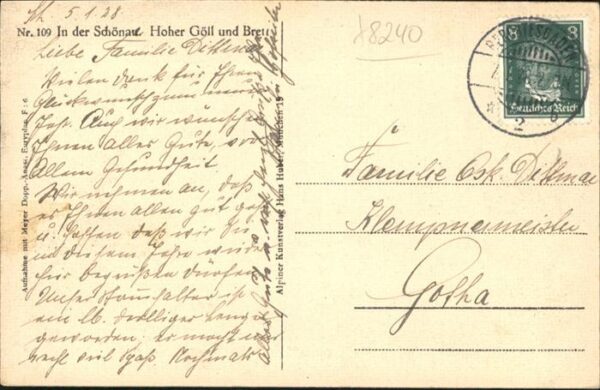 5.1.28
Nr. 109 In der Schönau Hoher Göll und Brett
Liebe Familie Dittmar
Vielen Dank für Ihren
Glückwunsch zum neuen
Jah. Auch wir wünschen
Ihnen alles Gute, vor
Allem Gesundheit
Wir nehmen an, daß
es Ihnen allen gut geht
u. hoffen daß wir Sie
in diesem Jahre wieder
hier begrüßen dürfen
Unser Stammhalter ist
ein lb. drolliger Bengel
geworden; er macht uns
recht viel Spaß Nochmals
alles Gute u.
Aufnahme mit Meyer Dopp.-Anast. Euryplan F:6
Alpiner Kunstverlag Hans Huber, München 19
18240
8 8
Deutsches Reich
BERCHTESGADEN
2
Familie Osk. Dittmar
Klempnermeister
Gotha